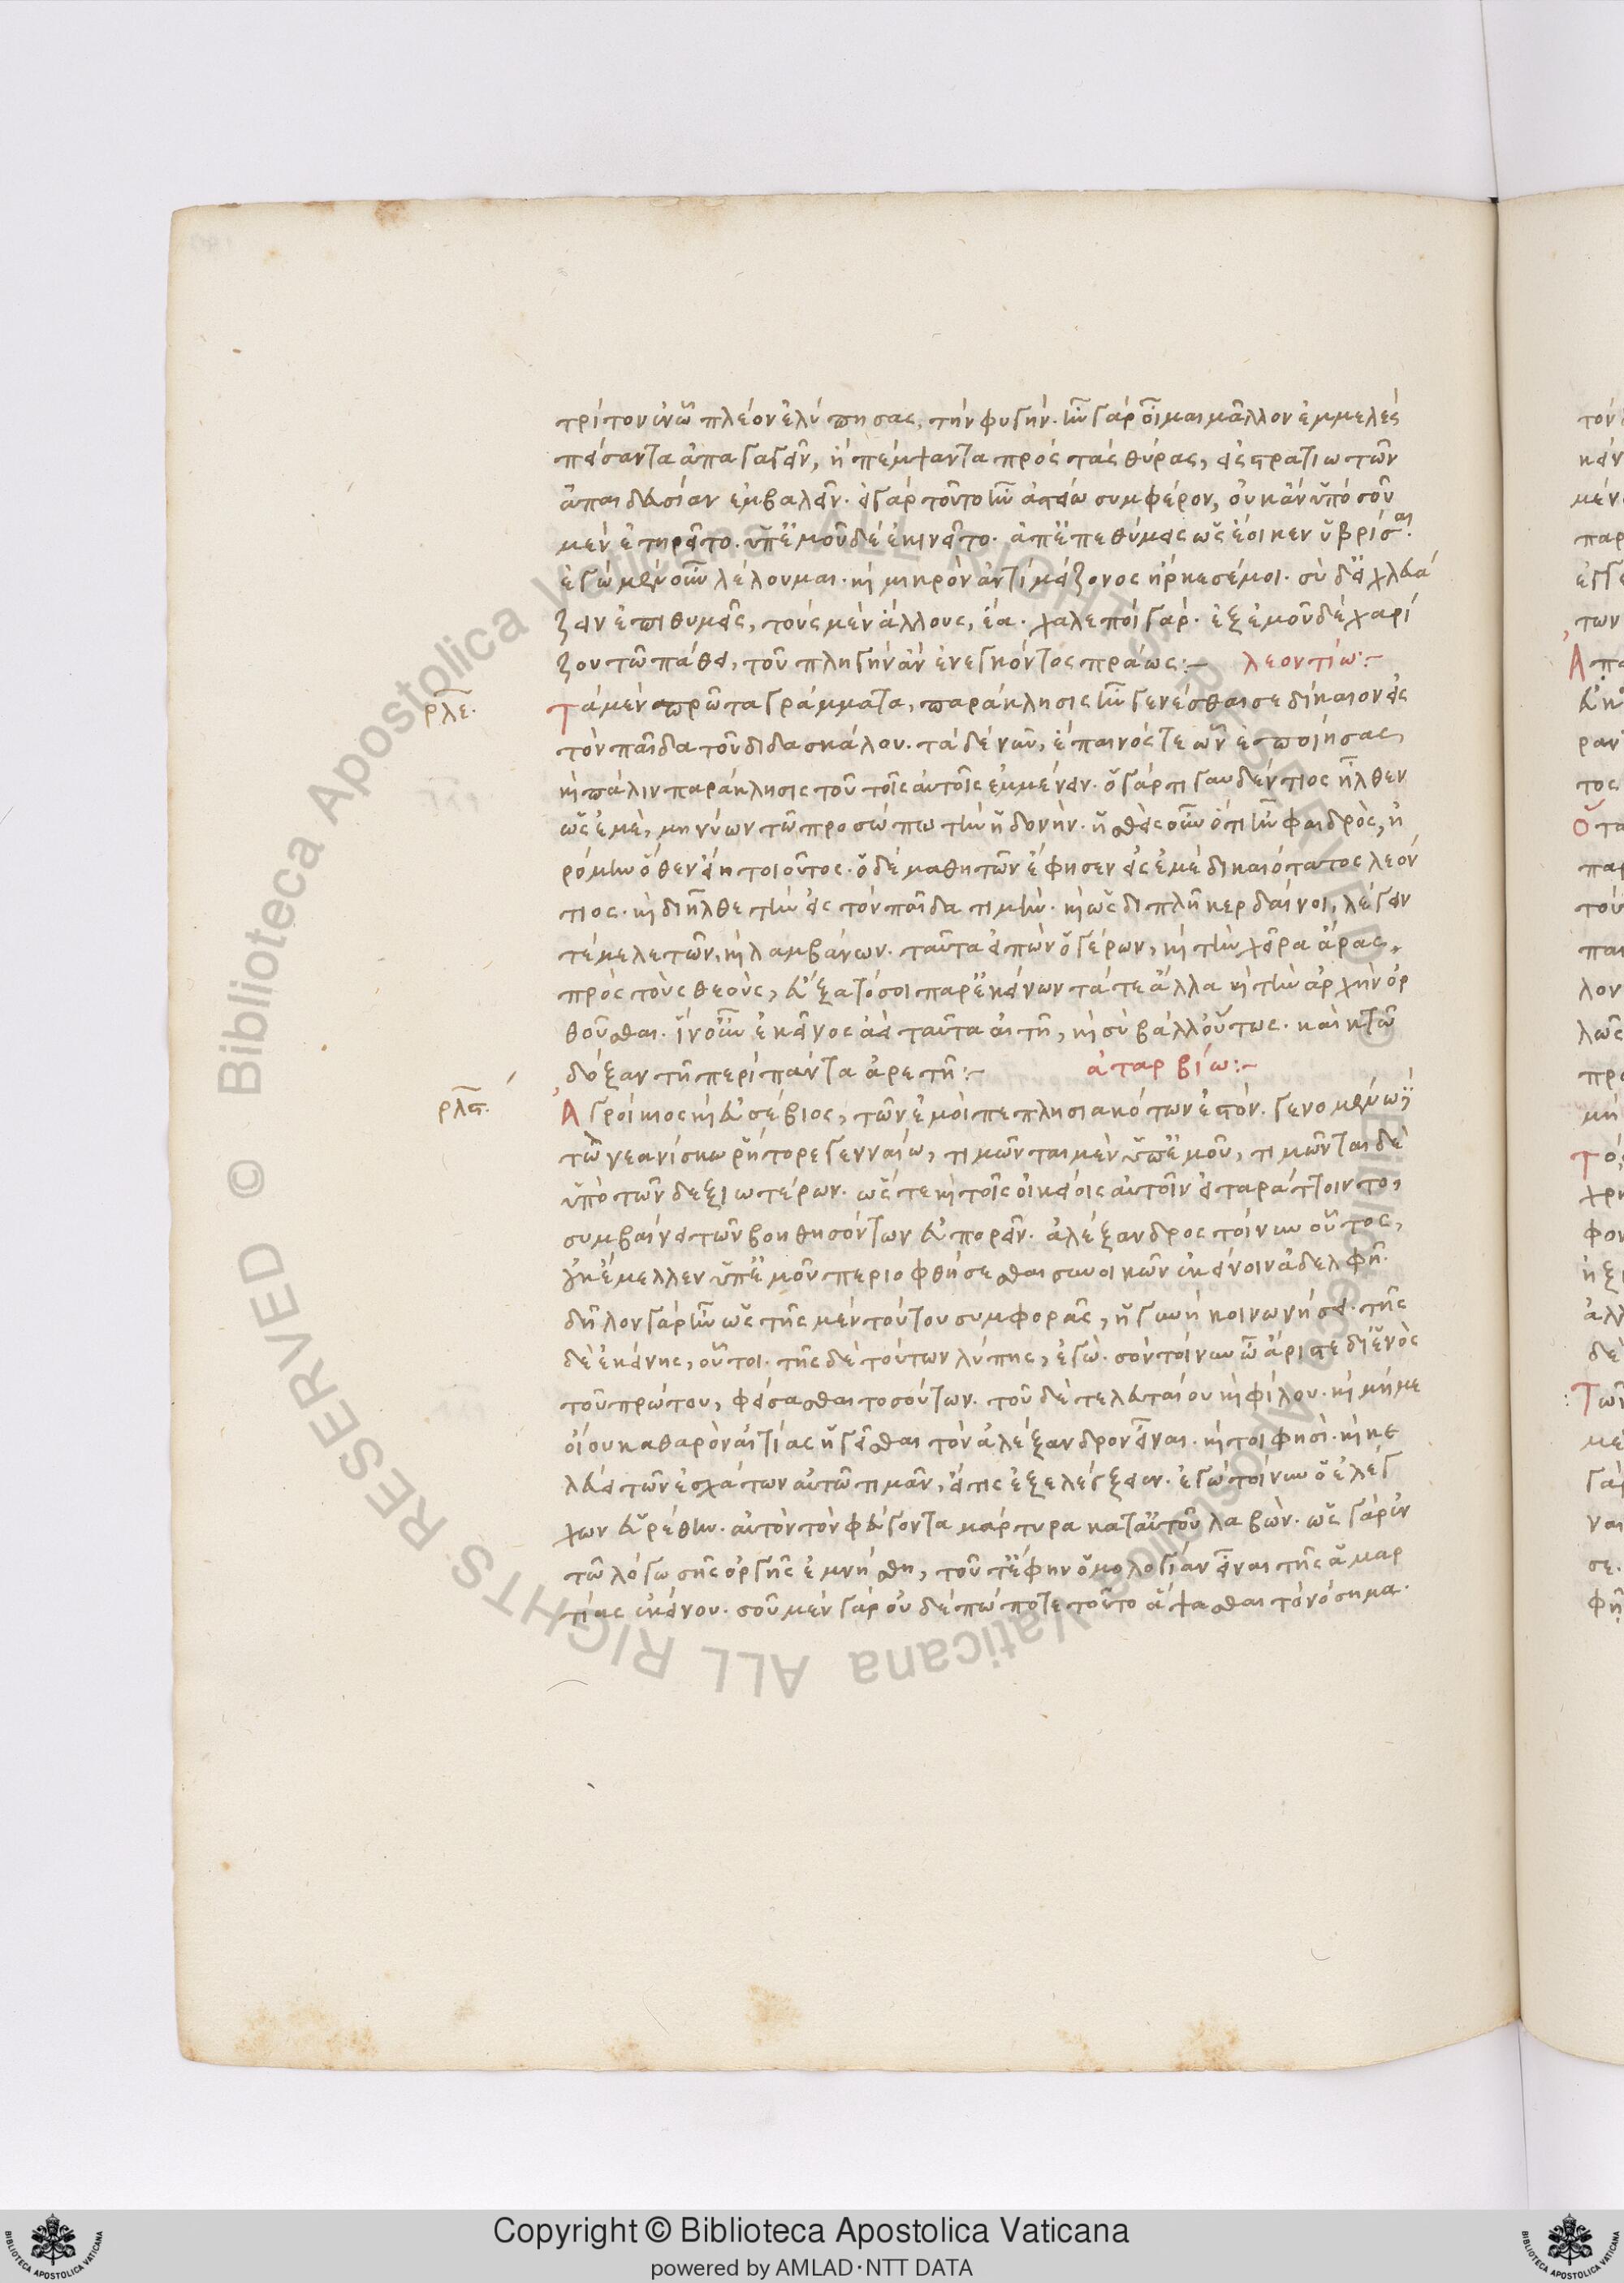 τρίτον ἐν ᾧ πλέον ἐλύπησας, τὴν φυγήν. ἦν γὰρ οἶμαι μᾶλλον ἐμμελὲς
πείσαντα ἀπαγαγεῖν, ἢ πέμψαντα πρὸς τὰς θύρας, εἰς στρατιωτῶν
ἀπαιδευσίαν ἐμβαλεῖν. εἰ γὰρ τοῦτο ἦν ἀπελθεῖν συμφέρον, οὐκ ἂν ὑπὸ σοῦ
μὲν ἐτηρεῖτο. ὑπ' ἐμοῦ δὲ ἐκινεῖτο. ἐπεὶ ἐπεθύμεις ὡς ἔοικεν ὑβρίσαι.
ἐγὼ μὲν οὖν λέλουμαι. καὶ μικρὸν ἀντὶ μείζονος ἤρκεσέ μοι. σὺ δ' εἰ χλευά
ζειν ἐπιθυμεῖς, τοὺς μὲν ἄλλους, ἔα. χαλεποὶ γάρ. ἐξ ἐμοῦ δὲ χαρί
ζου τῷ πάθει, τοῦ πληγὴν ἂν ἐνεγκόντος πράως:– λεοντίω:–
ρλε. Τὰ μὲν πρῶτα γράμματα, παράκλησις ἦν γενέσθαι σε δίκαιον εἰς
τὸν παῖδα τοῦ διδασκάλου. τὰ δὲ νῦν, ἔπαινός τε ὧν ἐποίησας,
καὶ πάλιν παράκλησις τοῦ τοῖς αὐτοῖς ἐμμένειν. ὁ γάρ τι γαυδέντιος ἦλθεν
ὡς ἐμὲ, μηνύων τῷ προσώπω τὴν ἡδονήν. ᾐσθεὶς οὖν ὅτι ἦν φαιδρὸς, ἠ
ρόμην ὅθεν εἴη τοιοῦτος. ὁ δὲ μαθητῶν ἔφησεν εἰς ἐμὲ δικαιότατος λεόν
τιος. καὶ διῆλθε τὴν εἰς τὸν παῖδα τιμήν. καὶ ὡς διπλῆ κερδαίνοι, λέγειν
τε μελετῶν, καὶ λαμβάνων. ταῦτα εἰπὼν ὁ γέρων, καὶ τὴν χεῖρα ἄρας,
πρὸς τοὺς θεοὺς, εὔξατό σοι παρ' ἐκείνων τά τε ἄλλα καὶ τὴν ἀρχὴν ὀρ
θοῦσθαι. ἵν' οὖν ἐκεῖνος ἀεὶ ταῦτα αἰτῇ, καὶ σὺ βάλλ' οὕτως. καὶ κτῶ
δόξαν τῇ περὶ πάντα ἀρετῇ:– ἀταρβίω:–
ρλϛ. Ἀγροίκιος καὶ εὐσέβιος, τῶν ἐμοὶ πεπλησιακότων ἐστόν. γενομένω
τὼ νεανίσκω ῥήτορε γενναίω, τιμῶνται μὲν ὑπ' ἐμοῦ, τιμῶνται δὲ
ὑπὸ τῶν δεξιωτέρων. ὥστε καὶ τοῖς οἰκείοις αὐτοῖν εἰ ταράττοιντο,
συμβαίνει τῶν βοηθησόντων εὐπορεῖν. ἀλέξανδρος τοίνυν οὗτος,
οὐκ ἔμελλεν ὑπ' ἐμοῦ περιοφθήσεσθαι συνοικῶν ἐκείνοιν ἀδελφῇ.
δῆλον γὰρ ἦν ὡς τῆς μὲν τούτου συμφορᾶς, ἡ γυνὴ κοινωνήσει. τῆς
δὲ ἐκείνης, οὗτοι. τῆς δὲ τούτων λύπης, ἐγώ. σὸν τοίνυν ὦ ἄριστε δι' ἑνὸς
τοῦ πρώτου, φείσασθαι τοσούτων. τοῦ δὲ τελευταίου καὶ φίλου. καὶ μή με
οἴου καθαρὸν αἰτίας ἡγεῖσθαι τὸν ἀλέξανδρον εἶναι. καί τοι φησί. καὶ κε
λεύει τῶν ἐσχάτων αὐτῷ τιμᾶν, εἴ τις ἐξελέγξειεν. ἐγὼ τοίνυν ὁ ἐλέγ
χων εὑρέθην. αὐτὸν τὸν φεύγοντα μάρτυρα κατ' αὐτοῦ λαβών. ὡς γὰρ ἐν
τῷ λόγω σῆς ὀργῆς ἐμνήσθη, τοῦτ' ἔφην ὁμολογίαν εἶναι τῆς ἁμαρ
τίας ἐκείνου. σοῦ μὲν γὰρ οὐδὲ πώποτε τοῦτο ἅψασθαι τὸ νόσημα.
Copyright © Biblioteca Apostolica Vaticana
powered by AMLAD·NTT DATA